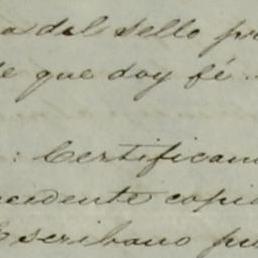 a del sello pr
de que doy fé.
: Certificam
cedente copia
Escribano pu